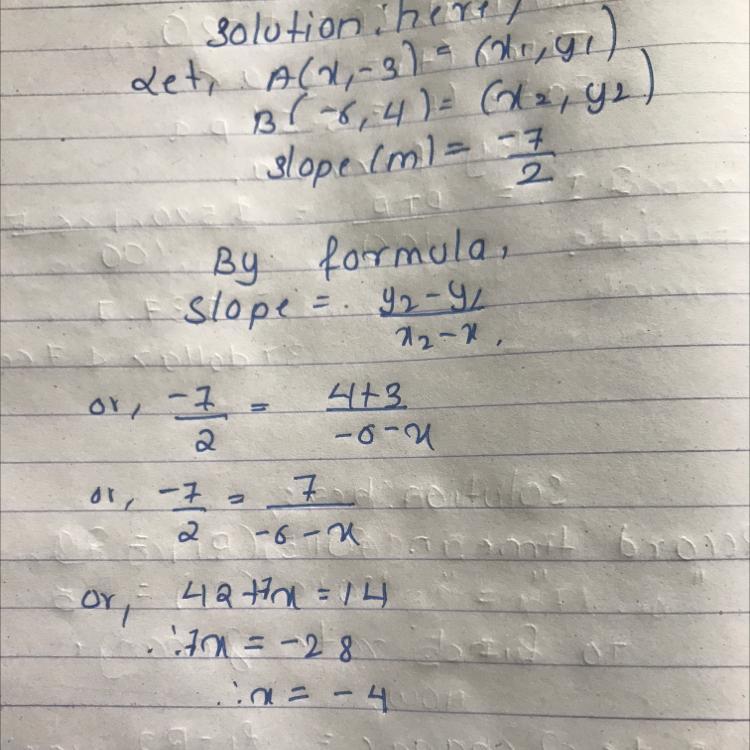 Solution: here,
Let, A(x,-3) = (x1, y1)
B(-6, 4) = (x2, y2)
slope (m) = -7/2
By formula,
slope = y2 - y1 / x2 - x1
or, -7/2 = 4+3 / -6-x
or, -7/2 = 7 / -6-x
or, 42+7x = 14
∴7x = -28
∴x = -4